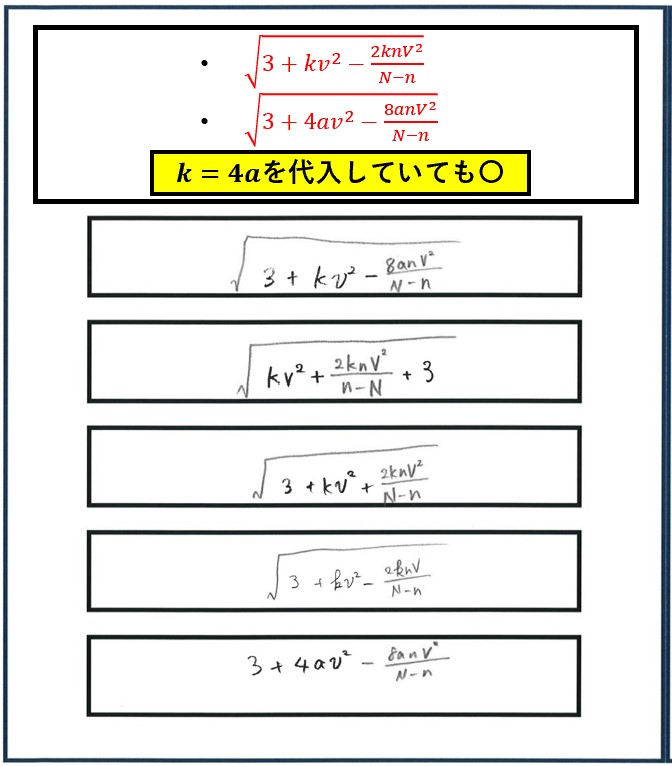 • √(3 + kv² − 2knV²/(N−n))
• √(3 + 4av² − 8anV²/(N−n))
k = 4aを代入していても〇
√(3 + kv² − 8anV²/(N−n))
√(kv² + 2knV²/(n−N) + 3)
√(3 + kv² + 2knV²/(N−n))
√(3 + kv² − 2knV/(N−n))
3 + 4av² − 8anV²/(N−n)